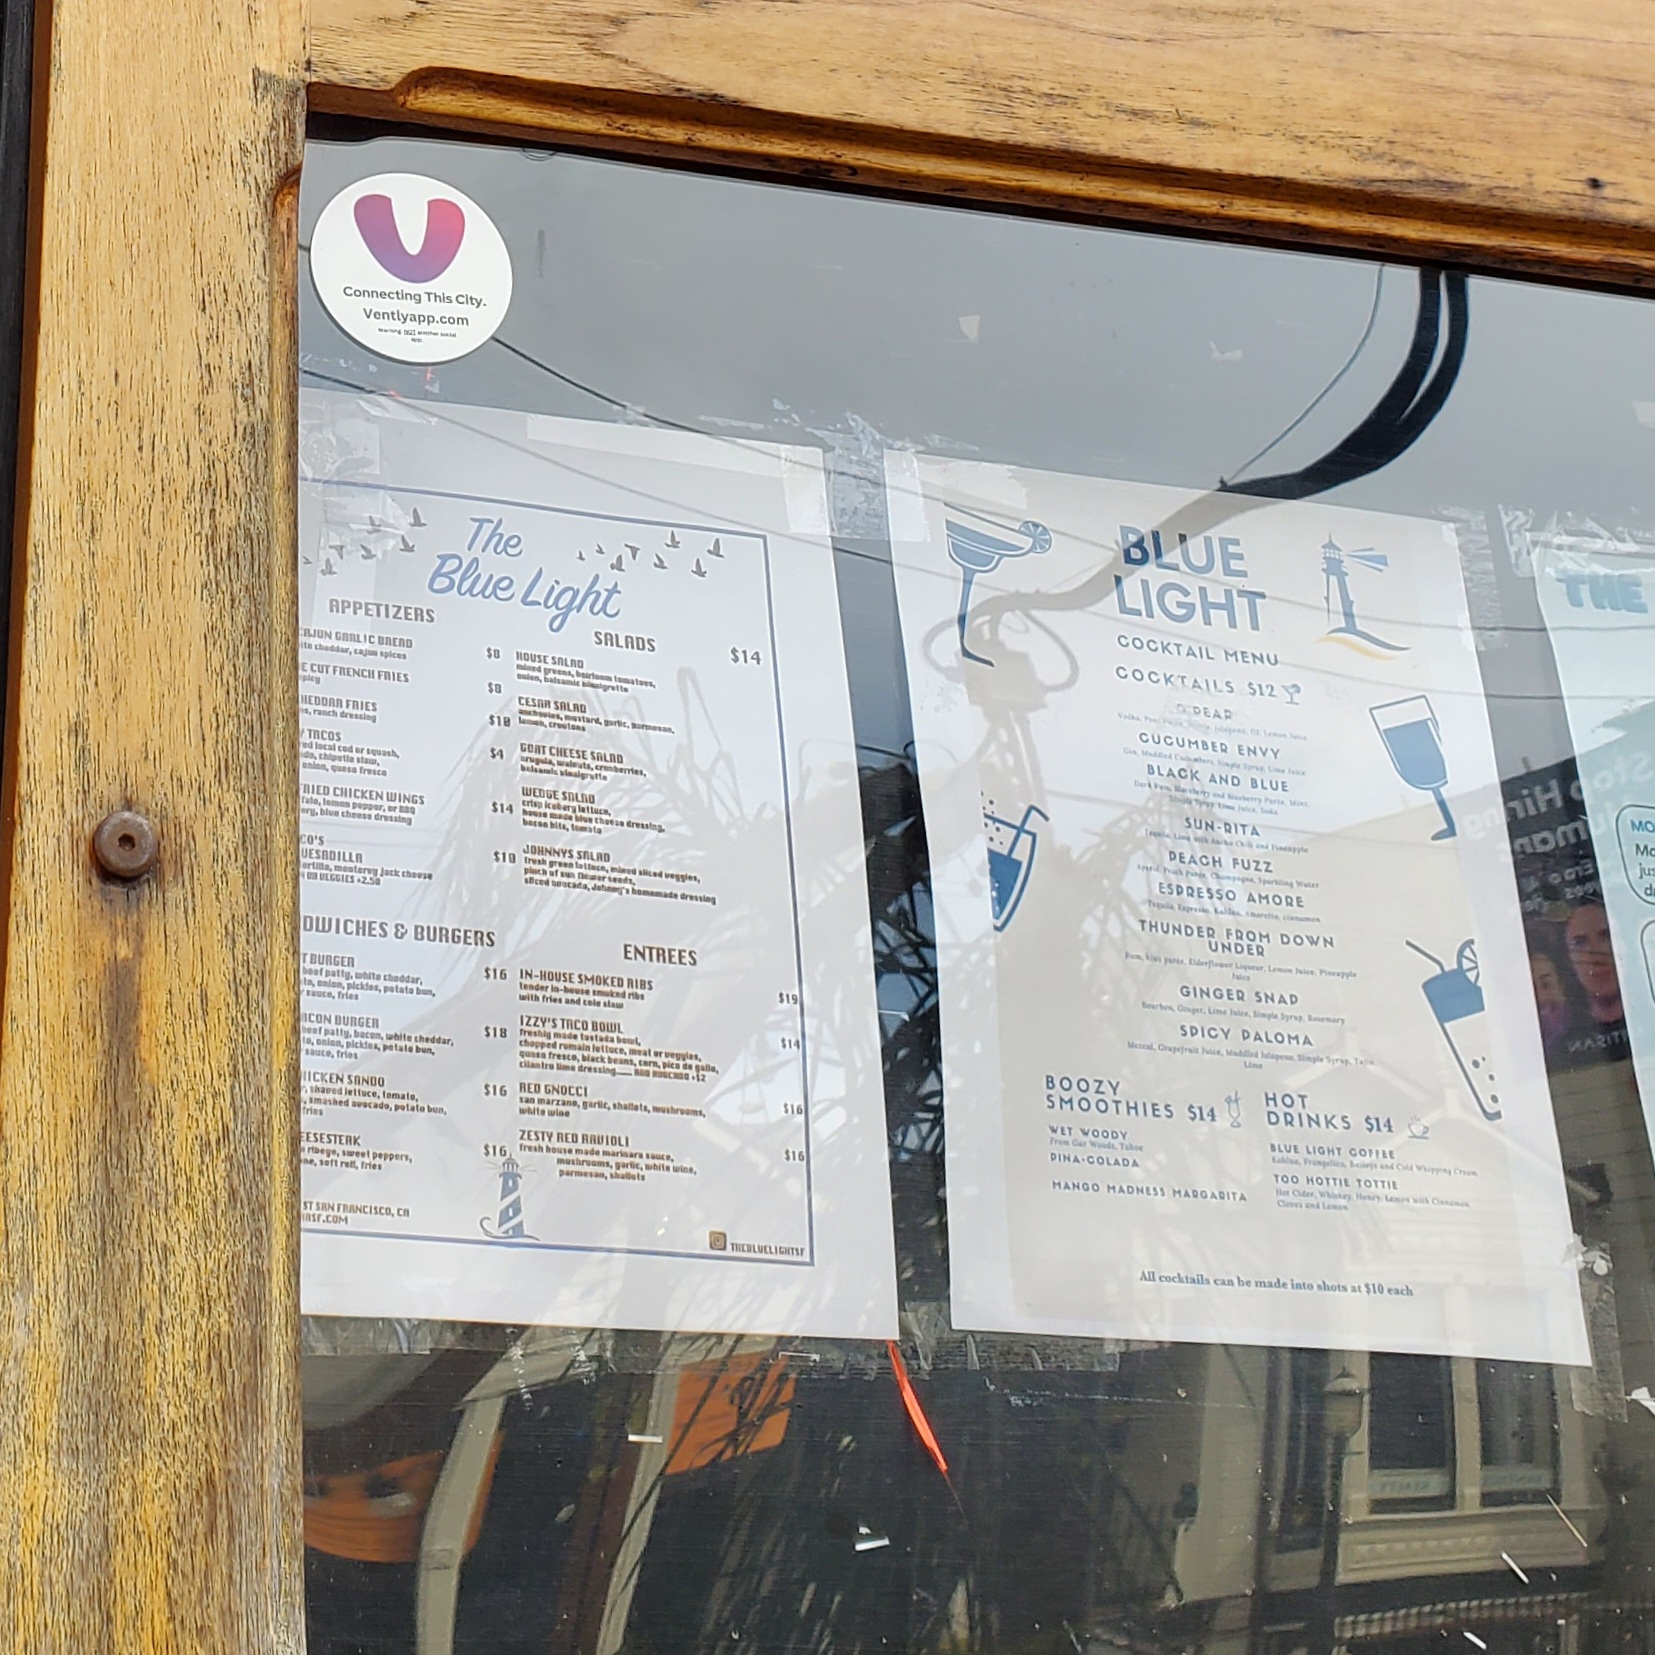 Connecting This City.
Ventlyapp.com
Warning NOT another social
app.
The
Blue Light
APPETIZERS
CAJUN GARLIC BREAD
cheddar, cajun spices
$8
CUT FRENCH FRIES
$8
CHEDDAR FRIES
ranch dressing
$10
TACOS
local cod or squash,
chipotle slaw,
onion, queso fresco
$4
FRIED CHICKEN WINGS
lemon pepper, or BBQ
blue cheese dressing
$14
QUESADILLA
tortilla, monterey jack cheese
OR VEGGIES +2.50
$10
SALADS $14
HOUSE SALAD
mixed greens, heirloom tomatoes,
onion, balsamic vinaigrette
CESAR SALAD
anchovies, mustard, garlic, parmesan,
lemon, croutons
GOAT CHEESE SALAD
arugula, walnuts, cranberries,
balsamic vinaigrette
WEDGE SALAD
crisp iceberg lettuce,
house made blue cheese dressing,
bacon bits, tomato
JOHNNYS SALAD
fresh green lettuce, mixed sliced veggies,
pinch of sun flower seeds,
sliced avocado, Johnny's homemade dressing
DWICHES & BURGERS
BURGER
beef patty, white cheddar,
onion, pickles, potato bun,
sauce, fries
$16
BACON BURGER
beef patty, bacon, white cheddar,
onion, pickles, potato bun,
sauce, fries
$18
CHICKEN SANDO
shaved lettuce, tomato,
smashed avocado, potato bun,
fries
$16
EESESTEAK
ribeye, sweet peppers,
soft roll, fries
$16
ENTREES
IN-HOUSE SMOKED RIBS
tender in-house smoked ribs
with fries and cole slaw
$19
IZZY'S TACO BOWL
freshly made tostada bowl,
chopped romain lettuce, meat or veggies,
queso fresco, black beans, corn, pico de gallo,
cilantro lime dressing— ADD AVOCADO +$2
$14
RED GNOCCI
san marzano, garlic, shallots, mushrooms,
white wine
$16
ZESTY RED RAVIOLI
fresh house made marinara sauce,
mushrooms, garlic, white wine,
parmesan, shallots
$16
ST SAN FRANCISCO, CA
SF.COM
THEBLUELIGHTSF
BLUE
LIGHT
COCKTAIL MENU
COCKTAILS $12
PEAR
CUCUMBER ENVY
Gin, Muddled Cucumbers, Simple Syrup, Lime Juice
BLACK AND BLUE
Dark Rum, Blackberry and Blueberry Puree, Mint,
Simple Syrup, Lime Juice, Soda
SUN-RITA
Tequila, Lime with Ancho Chili and Pineapple
PEACH FUZZ
Aperol, Peach puree, Champagne, Sparkling Water
ESPRESSO AMORE
Tequila, Espresso, Kahlua, Amaretto, cinnamon
THUNDER FROM DOWN
UNDER
Rum, kiwi puree, Elderflower Liqueur, Lemon Juice, Pineapple
Juice
GINGER SNAP
Bourbon, Ginger, Lime Juice, Simple Syrup, Rosemary
SPICY PALOMA
Mezcal, Grapefruit Juice, Muddled Jalapeno, Simple Syrup, Tajin,
Lime
BOOZY
SMOOTHIES $14
WET WOODY
From Gar Woods, Tahoe
PINA-COLADA
MANGO MADNESS MARGARITA
HOT
DRINKS $14
BLUE LIGHT COFFEE
Kahlua, Frangelico, Baileys and Cold Whipping Cream
TOO HOTTIE TOTTIE
Hot Cider, Whiskey, Honey, Lemon with Cinnamon,
Cloves and Lemon
All cocktails can be made into shots at $10 each
THE
MO